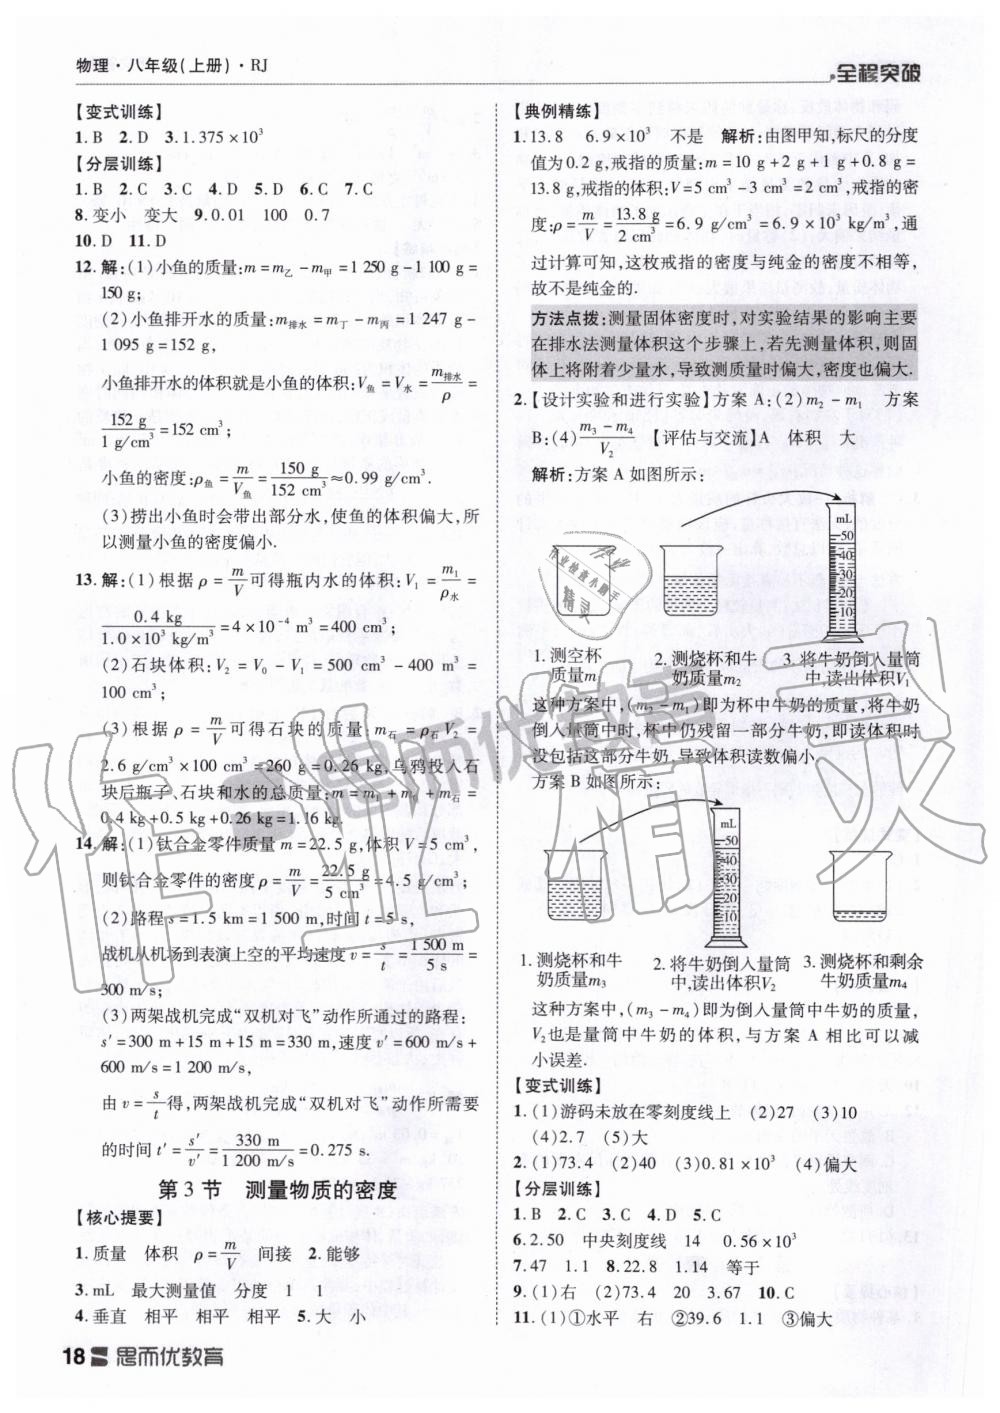 物理·八年级(上册)·RJ
全程突破
【变式训练】
1. B 2. D 3. 1.375×10³
【分层训练】
1. B 2. C 3. C 4. D 5. D 6. C 7. C
8. 变小 变大 9. 0.01 100 0.7
10. D 11. D
12. 解:(1)小鱼的质量:m=m乙-m甲=1 250 g-1 100 g=
150 g;
(2)小鱼排开水的质量:m排水=m丁-m丙=1 247 g-
1 095 g=152 g,
小鱼排开水的体积就是小鱼的体积:V鱼=V水=m排水/ρ=
152 g/1 g/cm³=152 cm³;
小鱼的密度:ρ鱼=m/V鱼=150 g/152 cm³≈0.99 g/cm³.
(3)捞出小鱼时会带出部分水,使鱼的体积偏大,所
以测量小鱼的密度偏小.
13. 解:(1)根据ρ=m/V可得瓶内水的体积:V₁=m₁/ρ水=
0.4 kg/1.0×10³ kg/m³=4×10⁻⁴ m³=400 cm³;
(2)石块体积:V₂=V₀-V₁=500 cm³-400 m³=
100 cm³,
(3)根据ρ=m/V可得石块的质量:m石=ρ石V₂=
2.6 g/cm³×100 cm³=260 g=0.26 kg,乌鸦投入石
块后瓶子、石块和水的总质量:m总=m水+m瓶+m石=
0.4 kg+0.5 kg+0.26 kg=1.16 kg.
14. 解:(1)钛合金零件质量m=22.5 g,体积V=5 cm³,
则钛合金零件的密度ρ=m/V=22.5 g/5 cm³=4.5 g/cm³;
(2)路程s=1.5 km=1 500 m,时间t=5 s,
战机从机场到表演上空的平均速度v=s/t=1 500 m/5 s=
300 m/s;
(3)两架战机完成“双机对飞”动作所通过的路程:
s′=300 m+15 m+15 m=330 m,速度v′=600 m/s+
600 m/s=1 200 m/s,
由v=s/t得,两架战机完成“双机对飞”动作所需要
的时间t′=s′/v′=330 m/1 200 m/s=0.275 s.
第3节 测量物质的密度
【核心提要】
1. 质量 体积 ρ=m/V 间接 2. 能够
3. mL 最大测量值 分度 1 1
4. 垂直 相平 相平 相平 5. 大 小
18 思而优教育
【典例精练】
1. 13.8 6.9×10³ 不是 解析:由图甲知,标尺的分度
值为0.2 g,戒指的质量:m=10 g+2 g+1 g+0.8 g=
13.8 g,戒指的体积:V=5 cm³-3 cm³=2 cm³,戒指的密
度:ρ=m/V=13.8 g/2 cm³=6.9 g/cm³=6.9×10³ kg/m³,通
过计算可知,这枚戒指的密度与纯金的密度不相等,
故不是纯金的.
方法点拨:测量固体密度时,对实验结果的影响主要
在排水法测量体积这个步骤上,若先测量体积,则固
体上将附着少量水,导致测质量时偏大,密度也偏大.
2. 【设计实验和进行实验】方案A:(2)m₂-m₁ 方案
B:(4)m₃-m₄/V₂ 【评估与交流】A 体积 大
解析:方案A如图所示:
mL
50
40
30
20
10
作业
作业检查小助手
精灵
1. 测空杯
质量m₁
2. 测烧杯和牛
奶质量m₂
3. 将牛奶倒入量筒
中,读出体积V₁
这种方案中,(m₂-m₁)即为杯中牛奶的质量,将牛奶
倒入量筒中时,杯中仍残留一部分牛奶,即读体积时
没包括这部分牛奶,导致体积读数偏小.
方案B如图所示:
mL
50
40
30
20
10
1. 测烧杯和牛
奶质量m₃
2. 将牛奶倒入量筒
中,读出体积V₂
3. 测烧杯和剩余
牛奶质量m₄
这种方案中,(m₃-m₄)即为倒入量筒中牛奶的质量,
V₂也是量筒中牛奶的体积,与方案A相比可以减
小误差.
【变式训练】
1. (1)游码未放在零刻度线上 (2)27 (3)10
(4)2.7 (5)大
2. (1)73.4 (2)40 (3)0.81×10³ (4)偏大
【分层训练】
1. B 2. C 3. C 4. D 5. C
6. 2.50 中央刻度线 14 0.56×10³
7. 47 1.1 8. 22.8 1.14 等于
9. (1)右 (2)73.4 20 3.67 10. C
11. (1)①水平 右 ②39.6 1.1 ③偏大
作业精灵
思而优教育